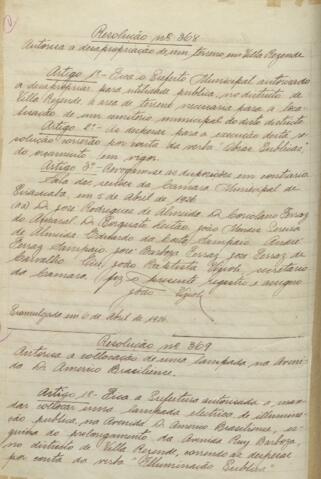 Resolução nº 368
Autorisa a desapropriação de um terreno, em Villa Rezende
Artigo 1º - Fica o Prefeito Municipal autorisado
a desapropriar para utilidade publica, no districto de
Villa Rezende, a area de terreno necessaria para a loca-
lisação de um cemiterio municipal do dito districto.
Artigo 2º - As despesas para a execução desta re-
solução correrão por conta da verba "Obras Publicas"
do orçamento em vigor.
Artigo 3º - Revogam-se as disposições em contrario
Sala das sessões da Camara Municipal de
Piracicaba, em 5 de Abril de 1926.
(aa) D. José Rodrigues de Almeida, D. Coriolano Ferraz
do Amaral, D. Torquato Leitão, João
de Almeida, Eduardo da Costa Sampaio, André
Ferraz Sampaio, José Barboza Ferraz, José Ferraz de
Carvalho. Eu, João Baptista Vizioli, secretario
da Camara, fiz o presente registro e assigno
João Vizioli
Promulgada em 6 de Abril de 1926.
Resolução nº 369
Autorisa a collocação de uma lampada, na Aveni-
da D. Americo Brasiliense.
Artigo 1º - Fica a Prefeitura autorisada a man-
dar collocar uma lampada electrica de illumina-
ção publica, na Avenida D. Americo Brasiliense, es-
quina do prolongamento da Avenida Ruy Barboza,
no districto de Villa Rezende, correndo as despesas
por conta da verba "Illuminação Publica"